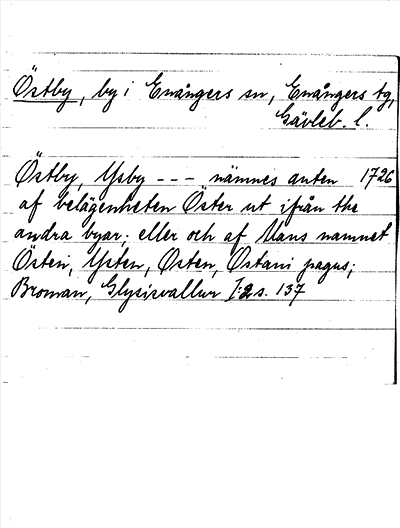 Östby, by i Enångers sn, Enångers tg,
Gävleb. l.
Östby, Ysby --- nämnes anten 1726
af belägenheten Öster ut ifrån the
andra byar; eller och af Mans namnet
Östen, Ysten, Østen, Østani pagus;
Broman, Glysisvallur I:2 s. 137